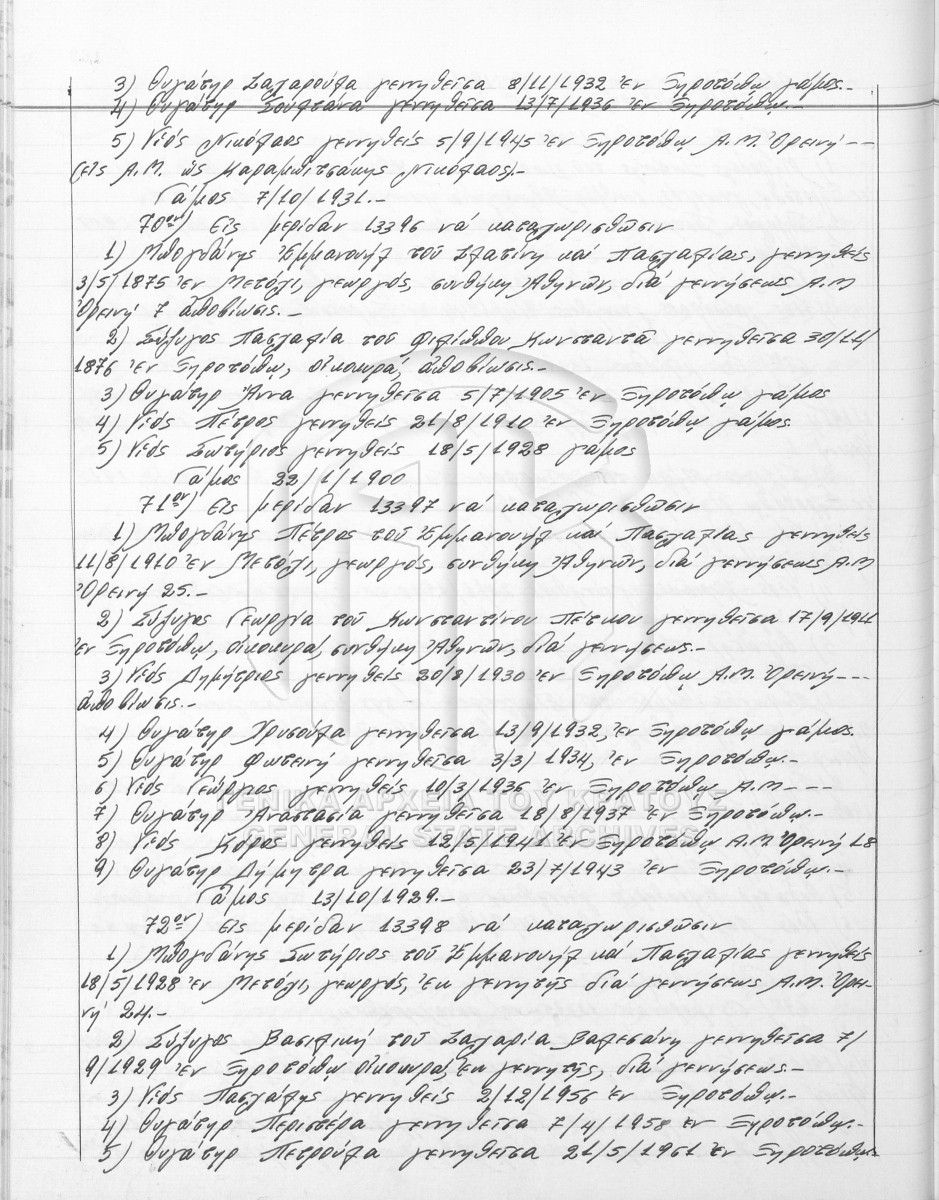 3) Θυγάτηρ Ζαχαρούλα γεννηθεῖσα 8/11/1932 ἐν Ξηροτόπῳ γάμος.-
4) Θυγάτηρ Σουλτάνα γεννηθεῖσα 13/7/1936 ἐν Ξηροτόπῳ.-
5) Υἱός Νικόλαος γεννηθείς 5/9/1945 ἐν Ξηροτόπῳ Α.Μ. Ὀρεινή ---
(εἰς Α.Μ. ὡς Καραμπιτσάκης Νικόλαος).-
Γάμος 7/10/1931.-
70ον) Εἰς μερίδαν 13396 νά καταχωρισθῶσιν
1) Μπογδάνης Ἐμμανουήλ τοῦ Σλατίνη καί Πασχαλίας, γεννηθείς
3/5/1875 ἐν Μετόχι, γεωργός, συνθήκη Ἀθηνῶν, διά γεννήσεως Α.Μ
Ὀρεινή 7 ἀποβίωσις.-
2) Σύζυγος Πασχαλία τοῦ Φιλίππου Κωνσταντᾶ γεννηθεῖσα 30/11/
1876 ἐν Ξηροτόπῳ, οἰκοκυρά, ἀποβίωσις.-
3) Θυγάτηρ Ἄννα γεννηθεῖσα 5/7/1905 ἐν Ξηροτόπῳ γάμος
4) Υἱός Πέτρος γεννηθείς 21/8/1910 ἐν Ξηροτόπῳ γάμος
5) Υἱός Σωτήριος γεννηθείς 18/5/1928 γάμος
Γάμος 22/1/1900
71ον) Εἰς μερίδαν 13397 νά καταχωρισθῶσιν
1) Μπογδάνης Πέτρος τοῦ Ἐμμανουήλ καί Πασχαλίας γεννηθείς
11/8/1910 ἐν Μετόχι, γεωργός, συνθήκη Ἀθηνῶν, διά γεννήσεως Α.Μ
Ὀρεινή 25.-
2) Σύζυγος Γεωργία τοῦ Κωνσταντίνου Πέτκου γεννηθεῖσα 17/9/1911
ἐν Ξηροτόπῳ, οἰκοκυρά, συνθήκη Ἀθηνῶν, διά γεννήσεως.-
3) Υἱός Δημήτριος γεννηθείς 20/8/1930 ἐν Ξηροτόπῳ Α.Μ. Ὀρεινή ---
ἀποβίωσις.-
4) Θυγάτηρ Χρυσούλα γεννηθεῖσα 13/9/1932, ἐν Ξηροτόπῳ γάμος.
5) Θυγάτηρ Φωτεινή γεννηθεῖσα 3/3/1934, ἐν Ξηροτόπῳ.-
6) Υἱός Γεώργιος γεννηθείς 10/3/1936 ἐν Ξηροτόπῳ Α.Μ ---
7) Θυγάτηρ Ἀναστασία γεννηθεῖσα 18/8/1937 ἐν Ξηροτόπῳ.-
ΓΕΝΙΚΑ ΑΡΧΕΙΑ ΤΟΥ ΚΡΑΤΟΥΣ
GENERAL STATE ARCHIVES
8) Υἱός γεννηθείς 12/5/1941 ἐν Ξηροτόπῳ Α.Μ. Ὀρεινή 18
9) Θυγάτηρ Δήμητρα γεννηθεῖσα 23/7/1943 ἐν Ξηροτόπῳ.-
Γάμος 13/10/1929.-
72ον) Εἰς μερίδαν 13398 νά καταχωρισθῶσιν
1) Μπογδάνης Σωτήριος τοῦ Ἐμμανουήλ καί Πασχαλίας γεννηθείς
18/5/1928 ἐν Μετόχι, γεωργός, ἐκ γενετῆς διά γεννήσεως Α.Μ. Ὀρει-
νή 24.-
2) Σύζυγος Βασιλική τοῦ Ζαχαρία Βαλεσάνη γεννηθεῖσα 7/
9/1929 ἐν Ξηροτόπῳ οἰκοκυρά, ἐκ γενετῆς, διά γεννήσεως.-
3) Υἱός Πασχάλης γεννηθείς 2/12/1956 ἐν Ξηροτόπῳ.-
4) Θυγάτηρ Περιστέρα γεννηθεῖσα 7/4/1958 ἐν Ξηροτόπῳ.-
5) Θυγάτηρ Πετρούλα γεννηθεῖσα 21/5/1961 ἐν Ξηροτόπῳ.-